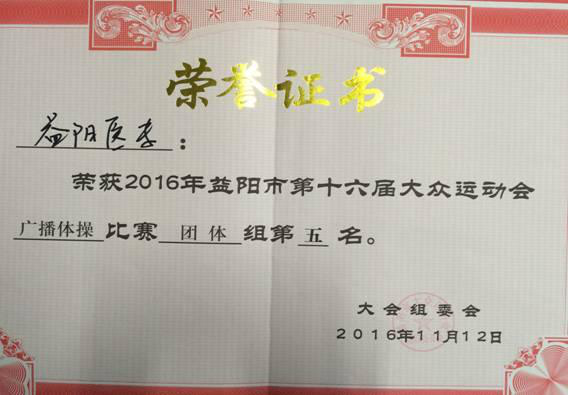 荣誉证书
益阳医专：
荣获2016年益阳市第十六届大众运动会
广播体操比赛团体组第五名。
大会组委会
2016年11月12日